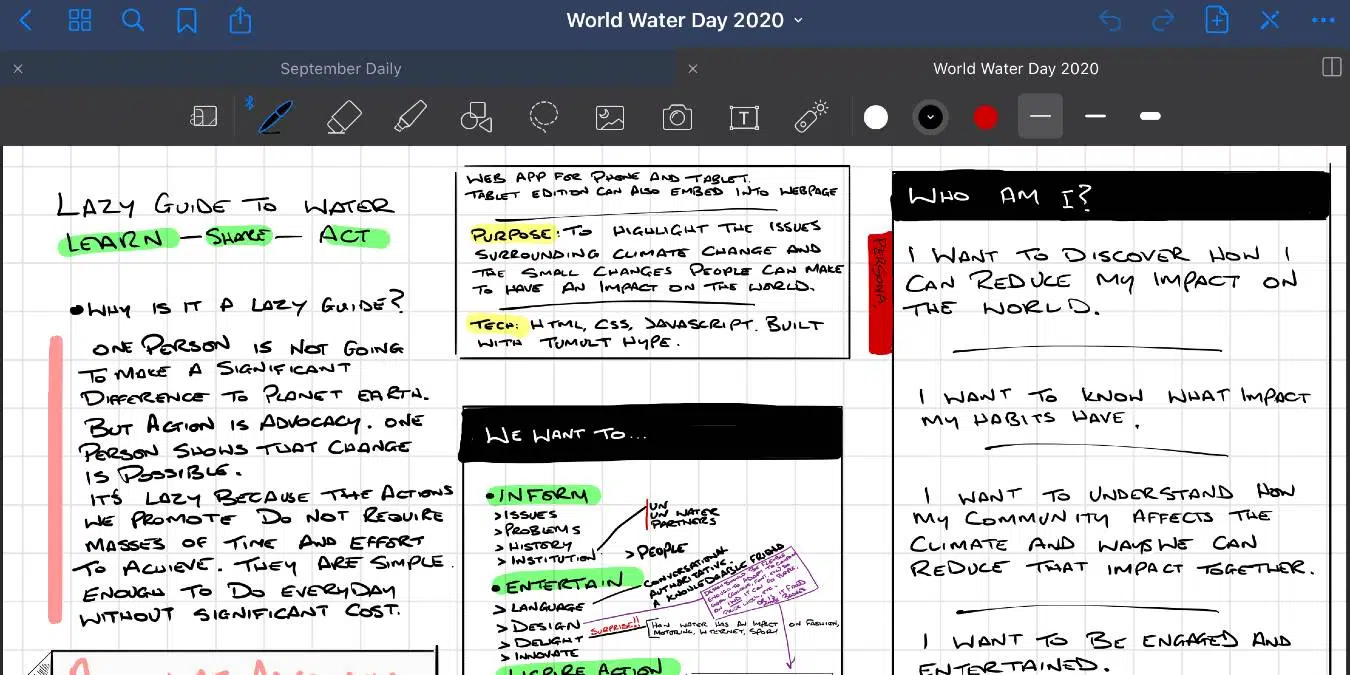 World Water Day 2020
September Daily
World Water Day 2020
T
LAZY GUIDE TO WATER
LEARN — SHARE — ACT
• WHY IS IT A LAZY GUIDE?
ONE PERSON IS NOT GOING
TO MAKE A SIGNIFICANT
DIFFERENCE TO PLANET EARTH.
BUT ACTION IS ADVOCACY. ONE
PERSON SHOWS THAT CHANGE
IS POSSIBLE.
IT'S LAZY BECAUSE THE ACTIONS
WE PROMOTE DO NOT REQUIRE
MASSES OF TIME AND EFFORT
TO ACHIEVE. THEY ARE SIMPLE
ENOUGH TO DO EVERYDAY
WITHOUT SIGNIFICANT COST.
WEB APP FOR PHONE AND TABLET.
TABLET EDITION CAN ALSO EMBED INTO WEBPAGE
PURPOSE: TO HIGHLIGHT THE ISSUES
SURROUNDING CLIMATE CHANGE AND
THE SMALL CHANGES PEOPLE CAN MAKE
TO HAVE AN IMPACT ON THE WORLD.
TECH: HTML, CSS, JAVASCRIPT. BUILT
WITH TUMULT HYPE.
WE WANT TO...
• INFORM
> ISSUES
> PROBLEMS
> HISTORY
> INSTITUTION
UN
UN WATER
PARTNERS
> PEOPLE
• ENTERTAIN
CONVERSATIONAL
AUTHORITATIVE.
A KNOWLEDGABLE FRIEND
> LANGUAGE
> DESIGN
> DELIGHT
> INNOVATE
SURPRISE!!
HOW WATER HAS AN IMPACT ON FASHION,
MOTORING, INTERNET, SPORT
INSPIRE ACTION
WHO AM I?
PERSONA
I WANT TO DISCOVER HOW I
CAN REDUCE MY IMPACT ON
THE WORLD.
I WANT TO KNOW WHAT IMPACT
MY HABITS HAVE.
I WANT TO UNDERSTAND HOW
MY COMMUNITY AFFECTS THE
CLIMATE AND WAYS WE CAN
REDUCE THAT IMPACT TOGETHER.
I WANT TO BE ENGAGED AND
ENTERTAINED.